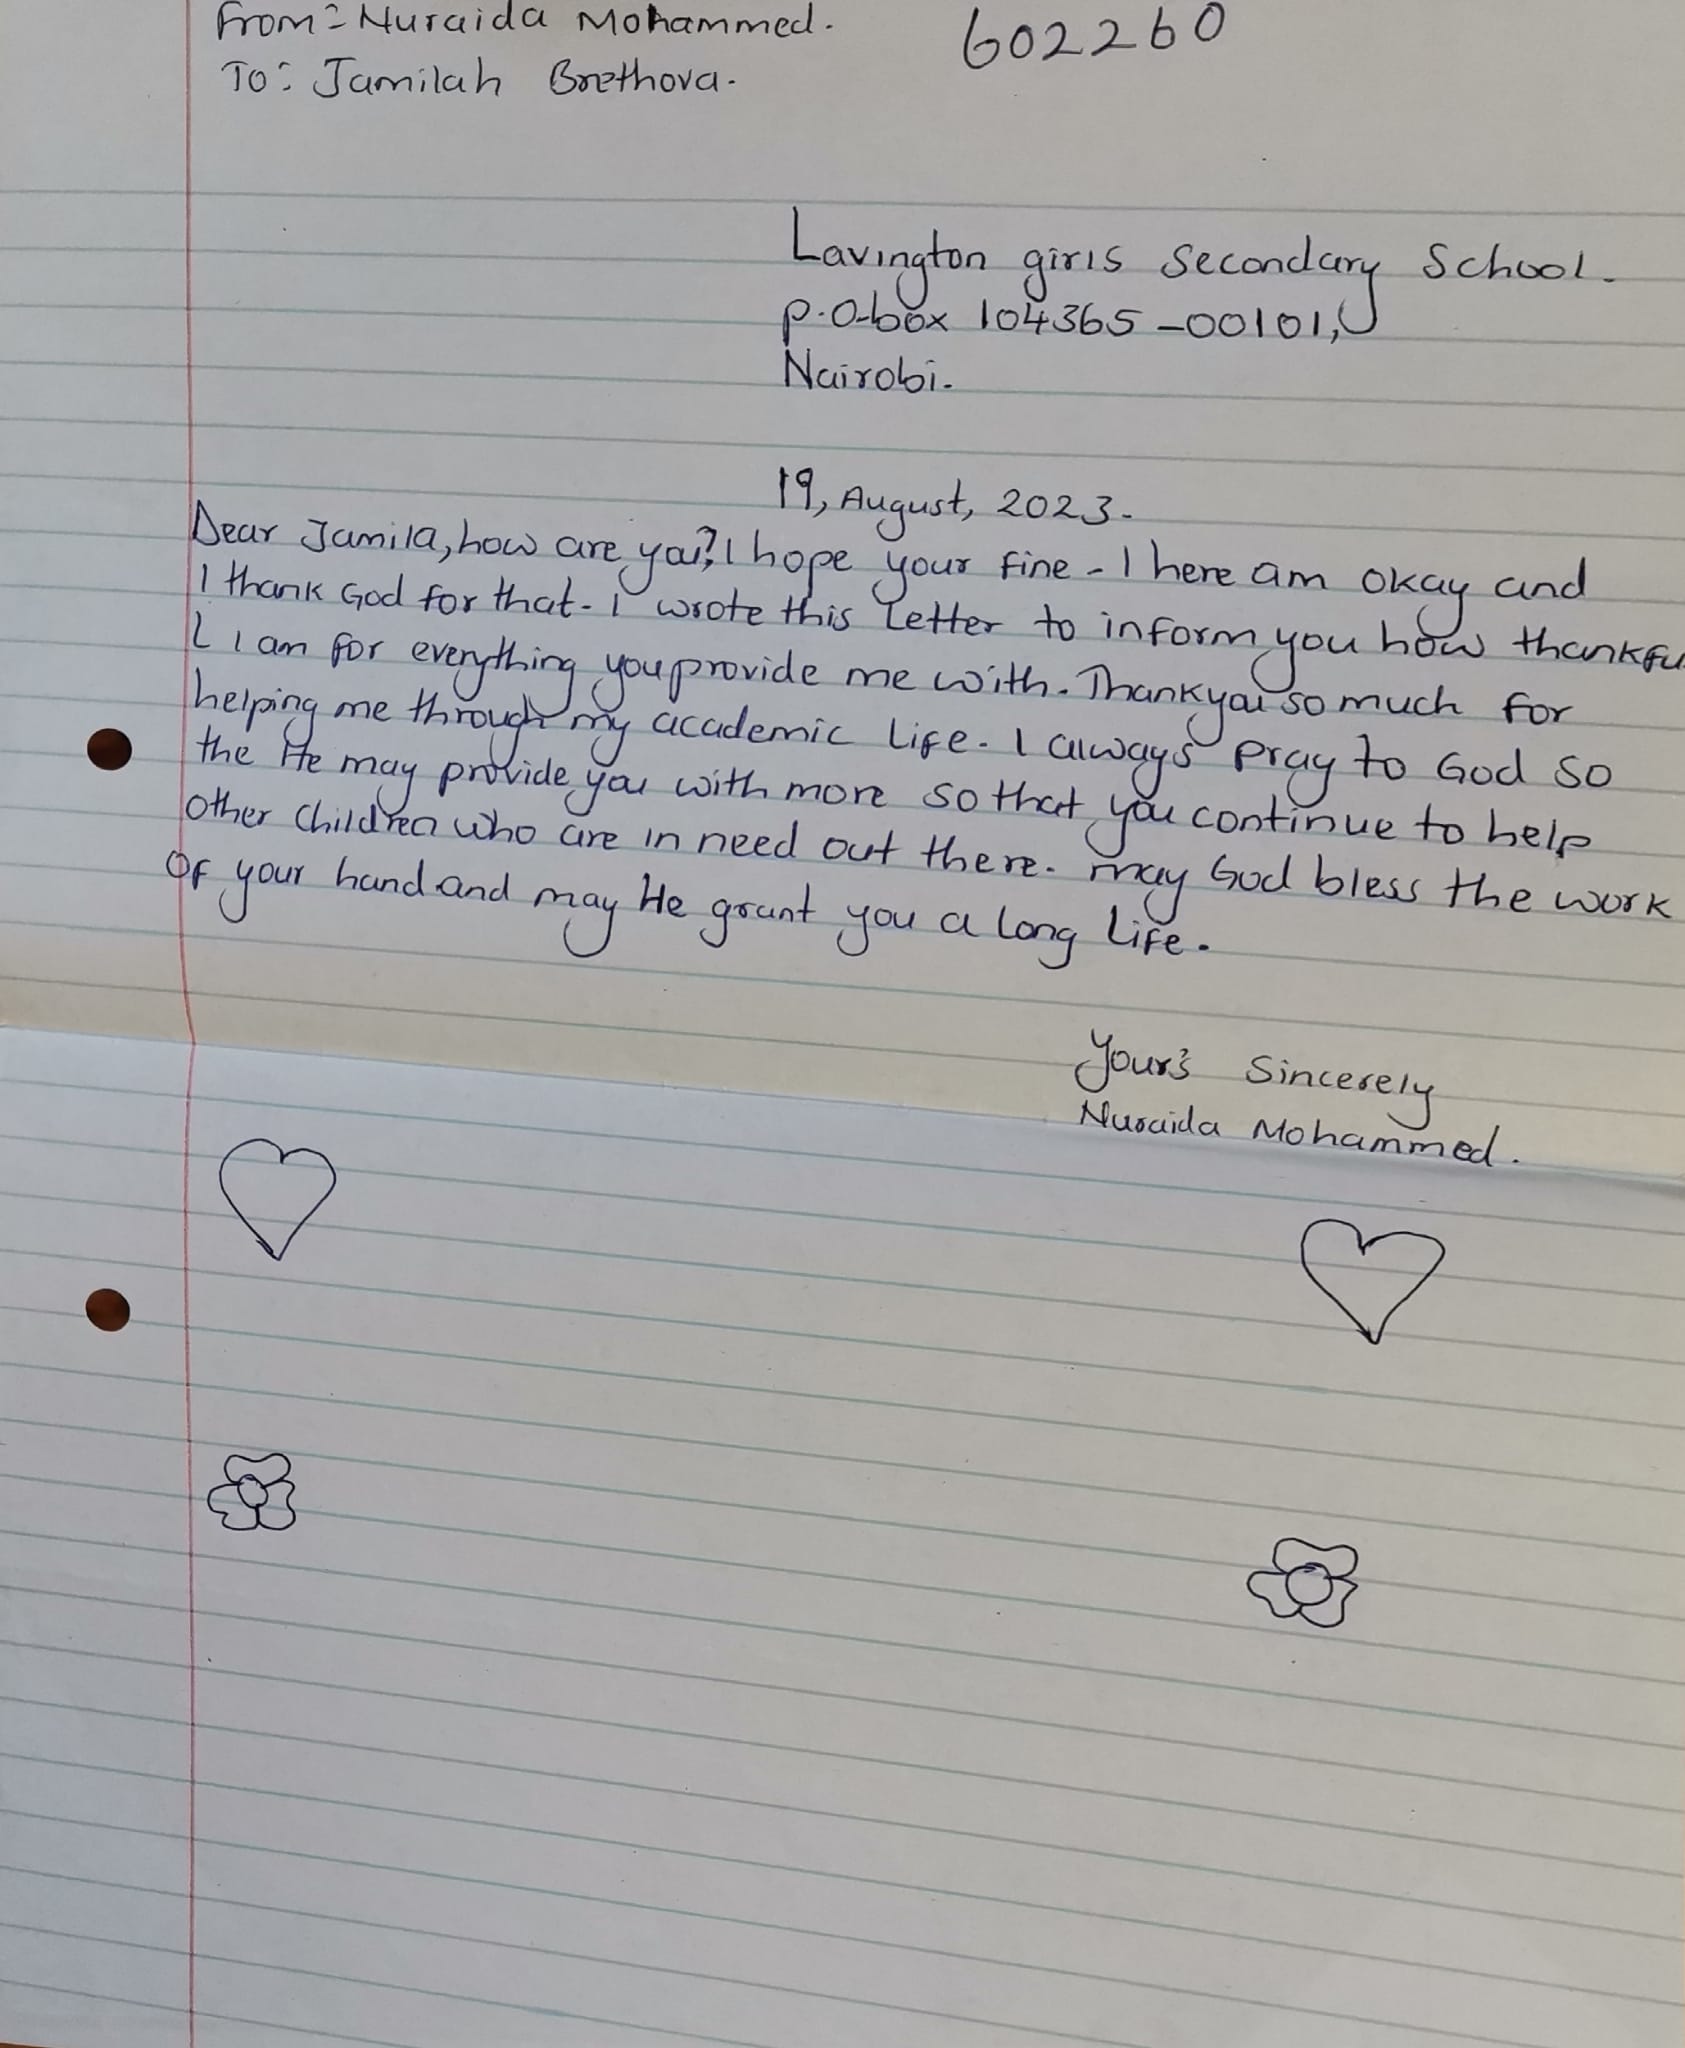 From: Nuraida Mohammed.
602260
To: Jamilah Brethova.
Lavington girls Secondary School.
P.O-box 104365-00101,
Nairobi.
19, August, 2023.
Dear Jamila, how are you? I hope your fine. I here am okay and
I thank God for that. I wrote this letter to inform you how thankfu
l I am for everything you provide me with. Thank you so much for
helping me through my academic life. I always pray to God so
the He may provide you with more so that you continue to help
other children who are in need out there. may God bless the work
of your hand and may He grant you a long life.
Your's Sincerely
Nuraida Mohammed.